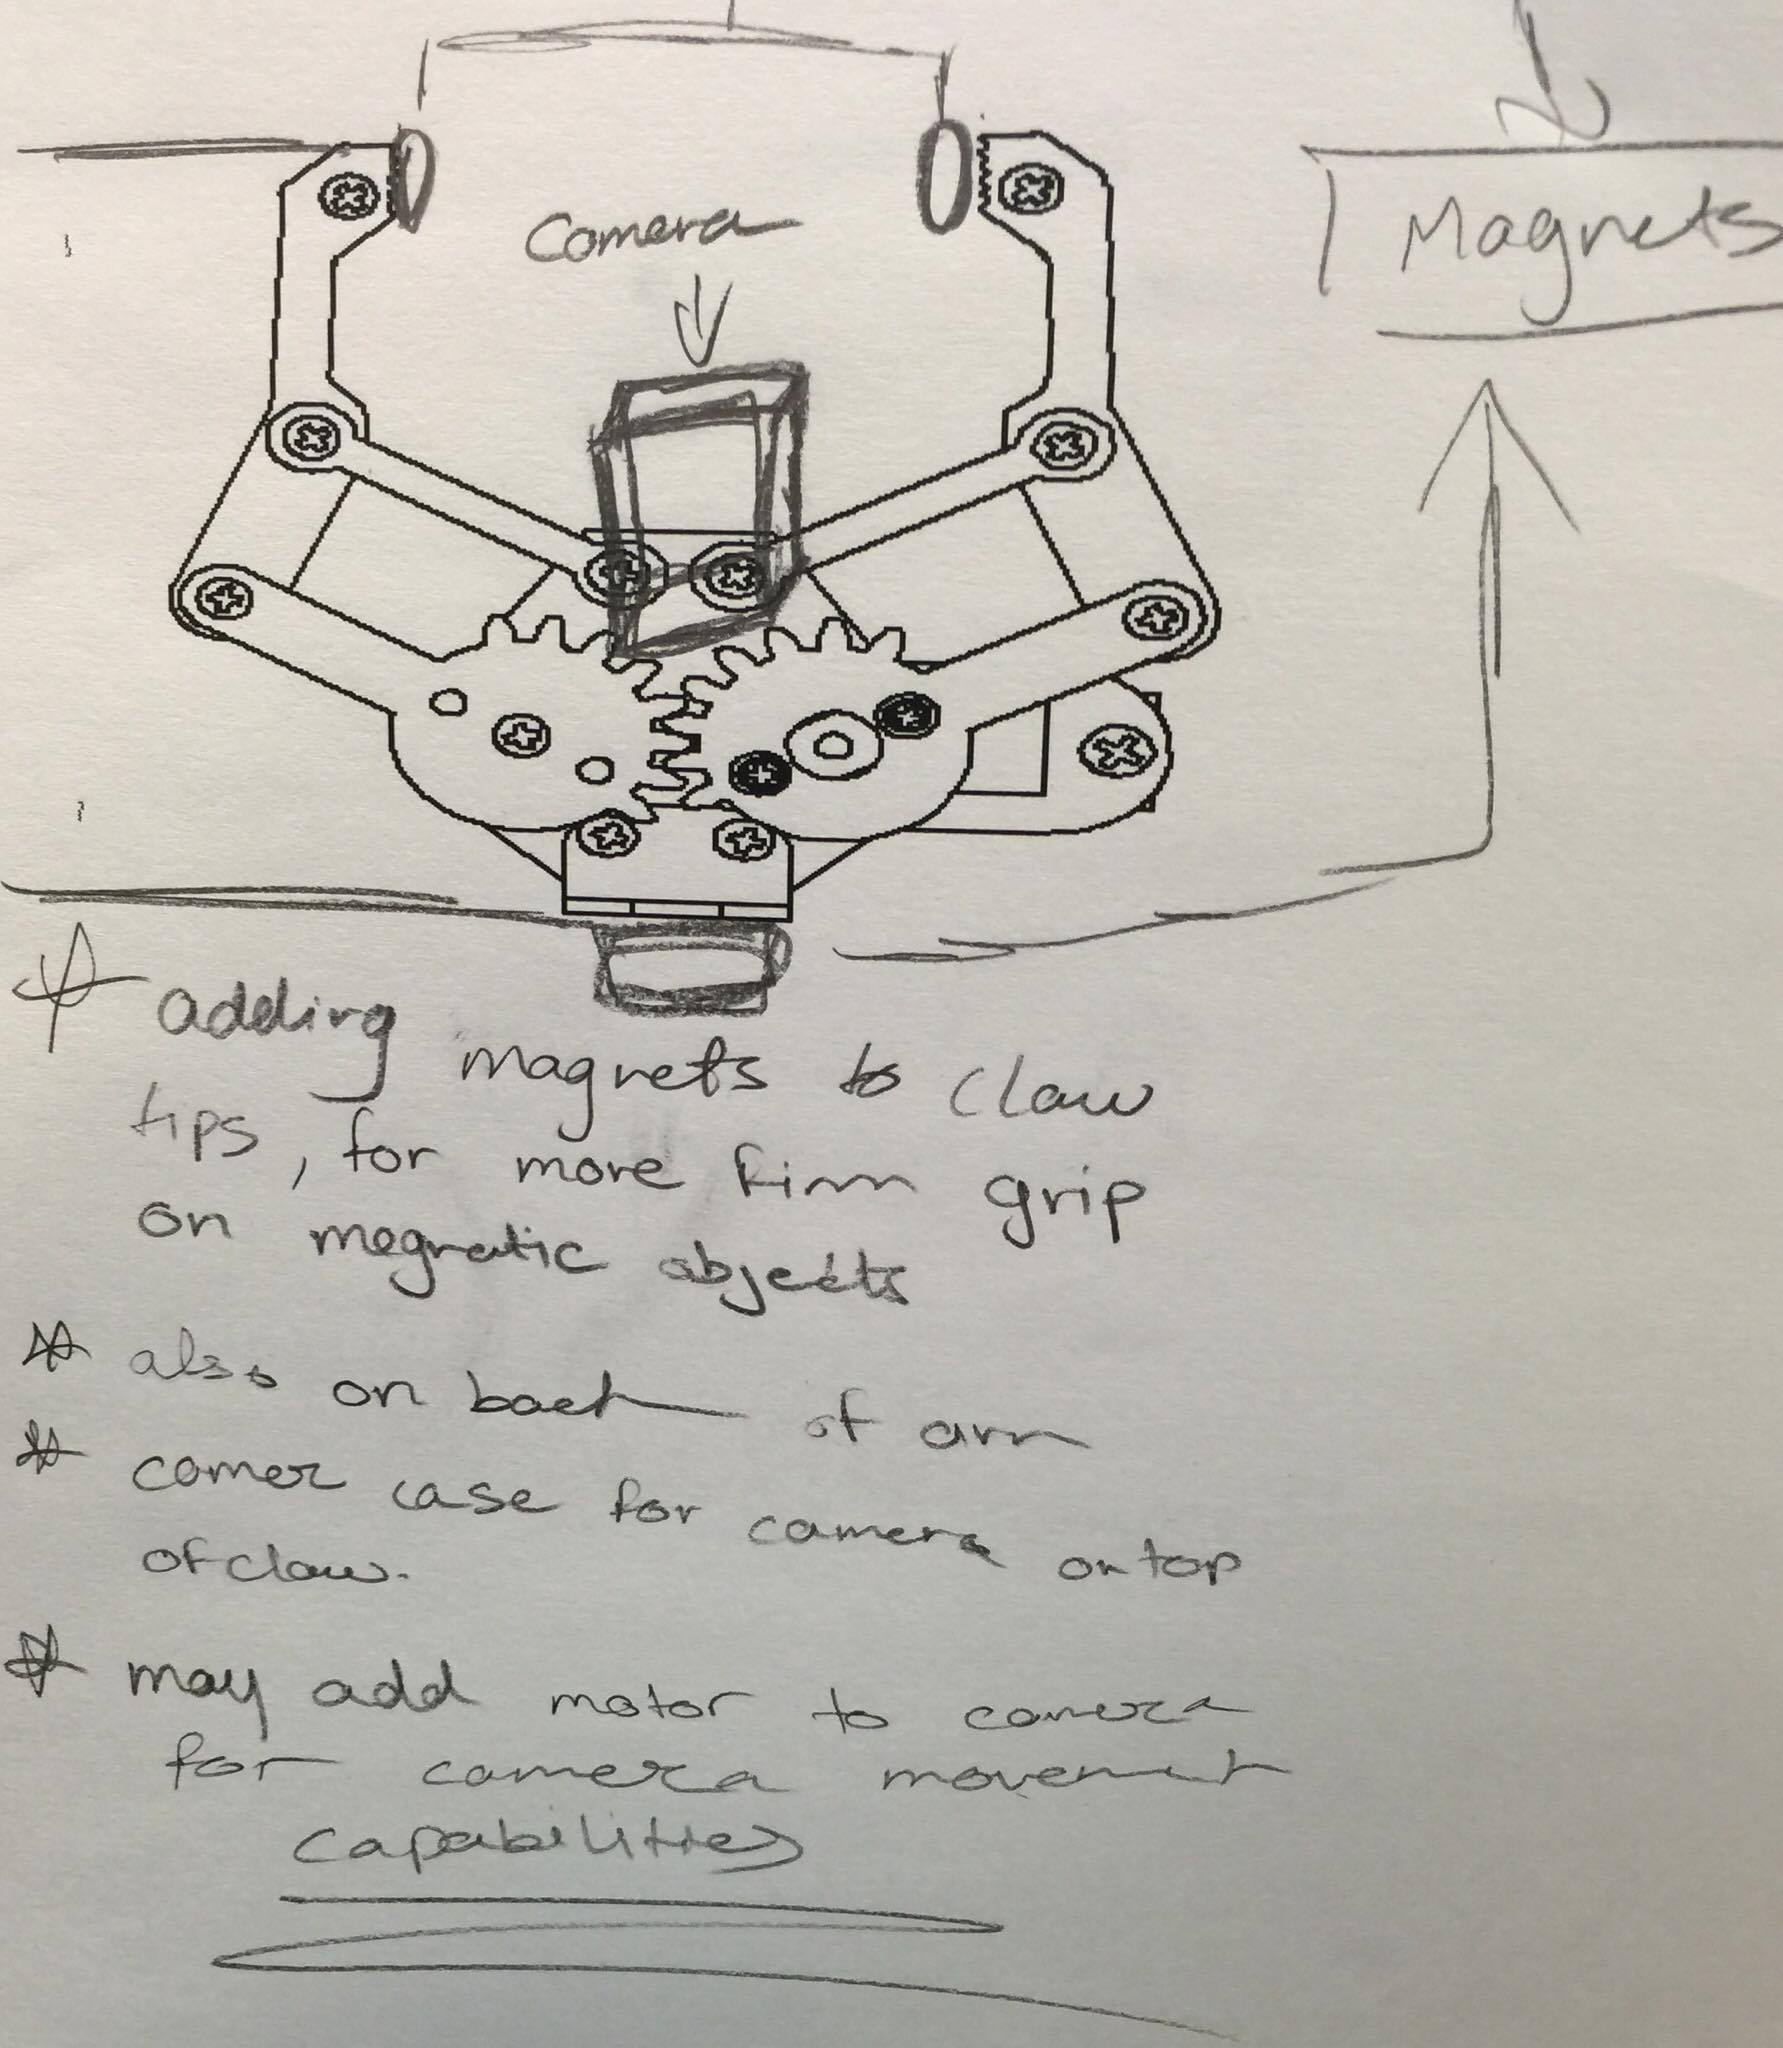 Camera
Magnets
adding magnets to claw
tips, for more firm grip
on magnetic objects
also on back of arm
camer case for camera on top
of claw.
may add motor to camera
for camera movement
capabilities